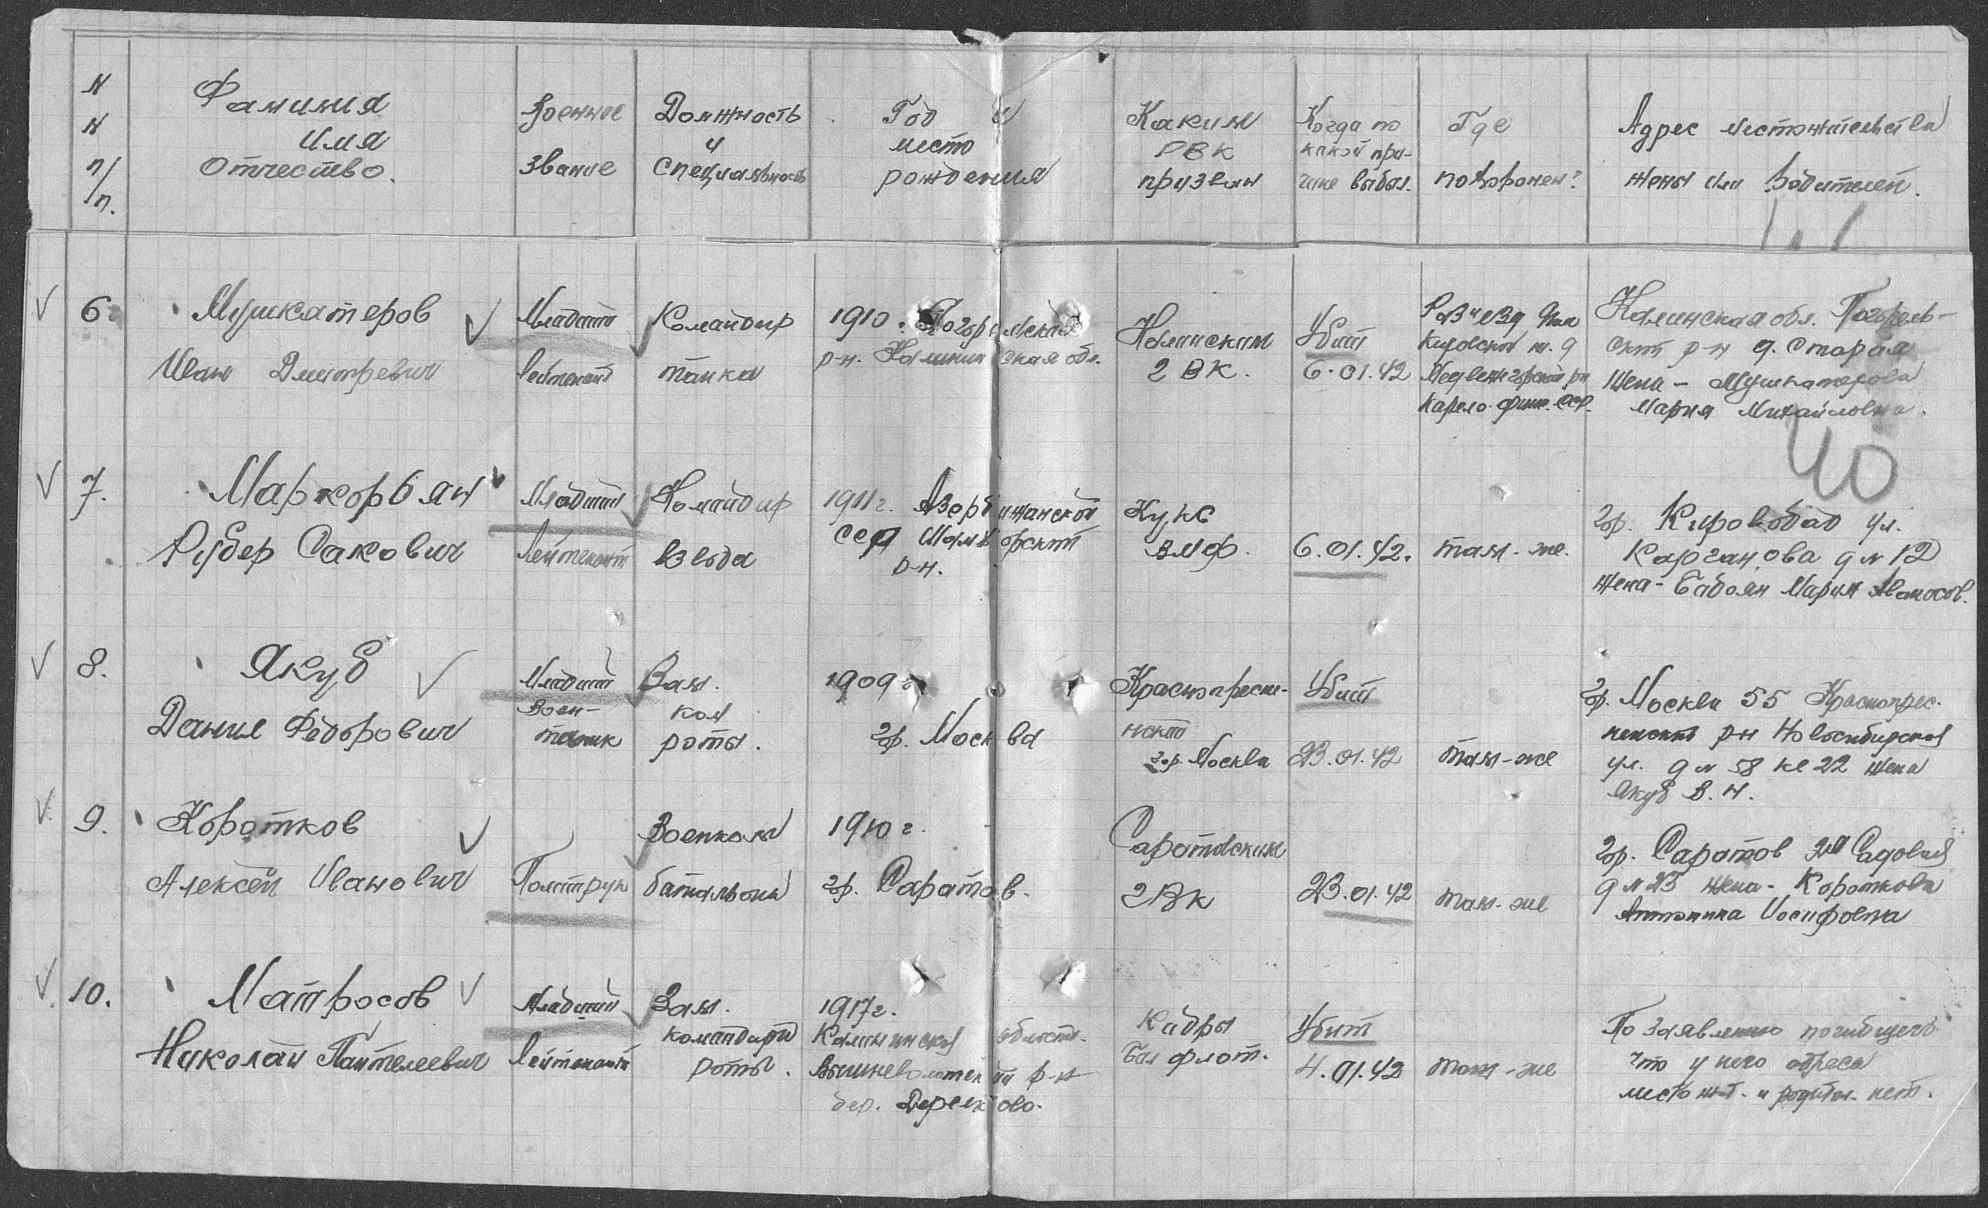 N N п/п.
Фамилия
Имя
Отчество.
Военное
звание
Должность
и
специальность
Год и
место
рождения
Каким
РВК
призван
Когда по
какой при-
чине выбыл.
Где
похоронен?
Адрес местожительства
жены или родителей.
6.
Мушкатеров
Иван Дмитревич
Младший
Лейтенант
Командир
танка
1910 г. Погорельский
р-н. Калининская обл.
Калинским
2 ВК.
Убит
6.01.42
Раз"езд
Кировской ж. д
Медвежегорский рн
Карело-Финн. сср.
Калининская обл. Погорель-
ский р-н д. Старая
Жена - Мушкатерова
Мария Михайловна.
40
7.
Маркорбян
Рубер Сакович
Младший
Лейтенант
Командир
взвода
1911 г. Азербижанской
сср Шамхорский
р-н.
Кунс
вмф.
6.01.42.
там-же.
гор. Кировобад ул.
Карганова д № 12
жена - Бабоян Мария
8.
Якуб
Данил Федорович
Младший
Воен-
техник
Зам.
ком
роты.
1909 г
гор. Москва
Краснопресне-
нский
гор. Москва
Убит
23.01.42
там-же
гор. Москва 55 Краснопрес-
ненский рн Новосибирская
ул. д № 58 кв 22 жена
Якуб В. Н.
9.
Коротков
Алексей Иванович
Политрук
Военком
баталъона
1910 г.
гор. Саратов.
Саратовским
2ВК
23.01.42
там-же
гор. Саратов ул Садовая
д № 23 жена - Короткова
Антонина Иосифовна
10.
Матросов
Николай Пантелеевич
Младший
Лейтенант
Зам.
командира
роты.
1917 г.
Калининская область.
Вышневолотский р-н
дер.
Кадры
Бал флот.
Убит
4.01.42
там-же
По заявлению погибшего
что у него адреса
место жит. и родител. нет.